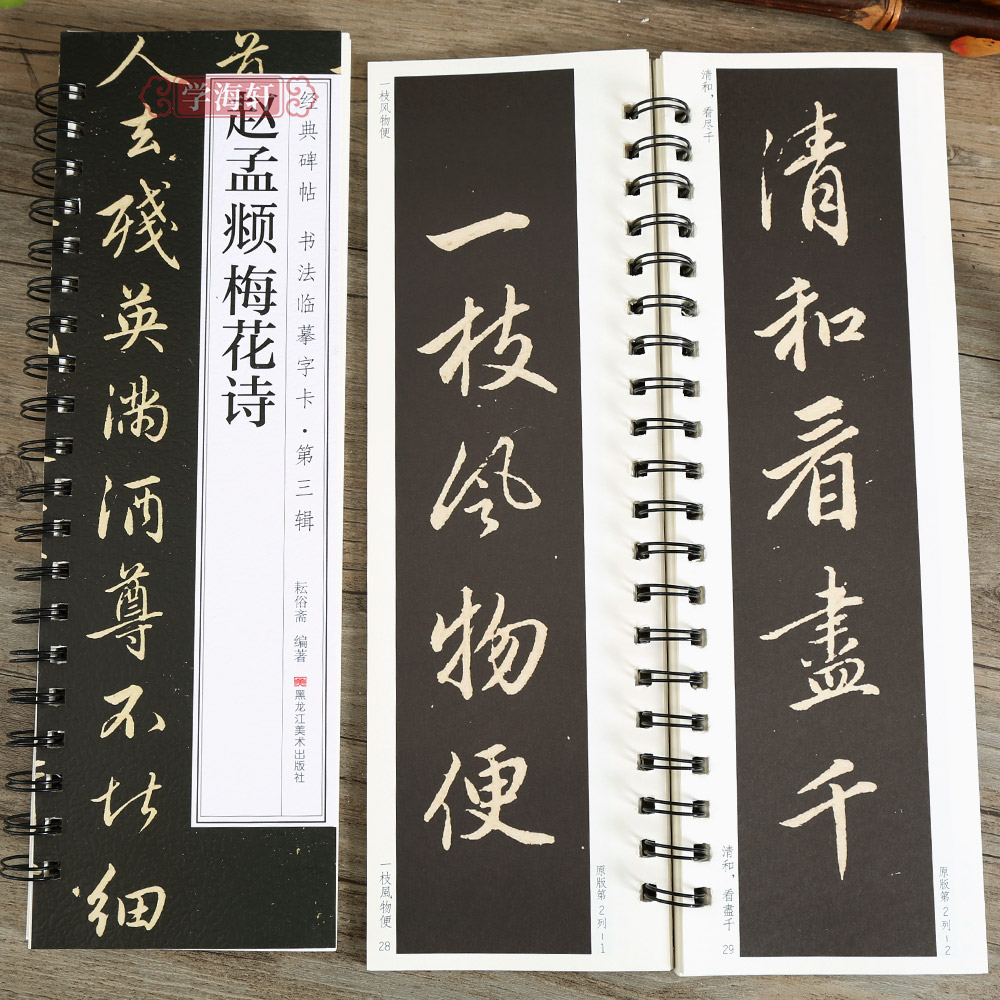 学海轩
人去殘英滿酒尊不堪細
经典碑帖 书法临摹字卡·第三辑
赵孟頫梅花诗
耘俗斋 编著
黑龙江美术出版社
一枝风物便
一枝風物便
一枝風物便
28
原版第2列-1
清和,看尽千
清和看盡千
清和,看盡千
29
原版第2列-2